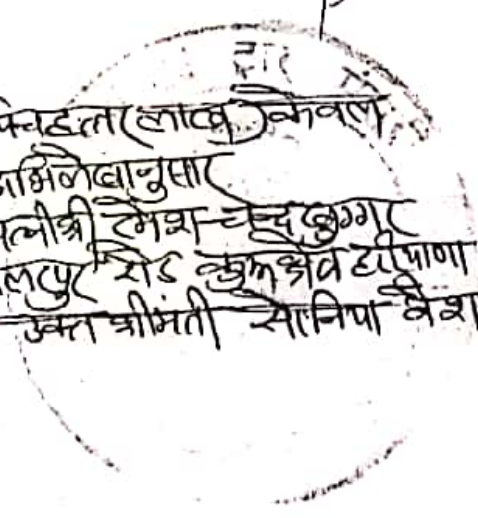 पचहत्तर लाख) केवल
अभिलेखानुसार
पत्नी श्री रमेश चन्द्र डुग्गर
रोड कुरूक्षेत्र हरियाणा
उक्त श्रीमती सोनिया